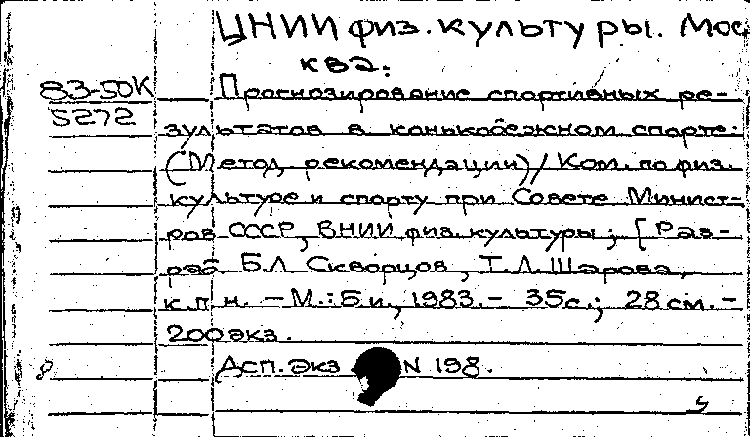 ЦНИИ физ. культуры. Мос
ква:
83-50К
5272
Прогнозирование спортивных ре-
зультатов в конькобежном спорте:
(Метод. рекомендации) / Ком. по физ.
культуре и спорту при Совете Минист-
ров СССР, ВНИИ физ. культуры; [Раз-
раб. Б.Л. Скворцов, Т.Л. Шарова,
к.п.н. – М.: Б.и., 1983. – 35с.; 28 см. –
200 экз.
Дсп. Экз N 198.